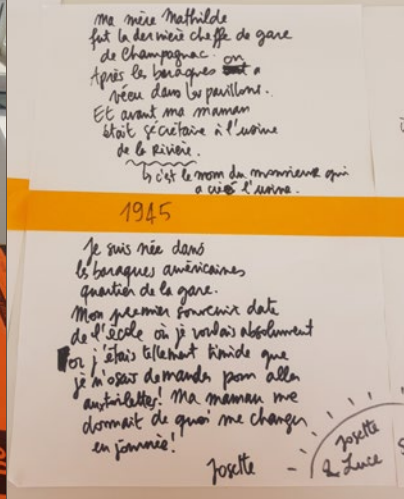 ma mère Mathilde
fut la dernière cheffe de gare
de Champagnac. on
Après les baraques a
vécu dans les pavillons.
Et avant ma maman
était secrétaire à l'usine
de la Rivière.
↳ c'est le nom du monsieur qui
a créé l'usine.
1945
Je suis née dans
les baraques américaines
quartier de la gare.
Mon premier souvenir date
de l'école où je voulais absolument
où j'étais tellement timide que
je n'osais demander pour aller
aux toilettes! Ma maman me
donnait de quoi me changer
en journée!
Josette
Josette
& Luce